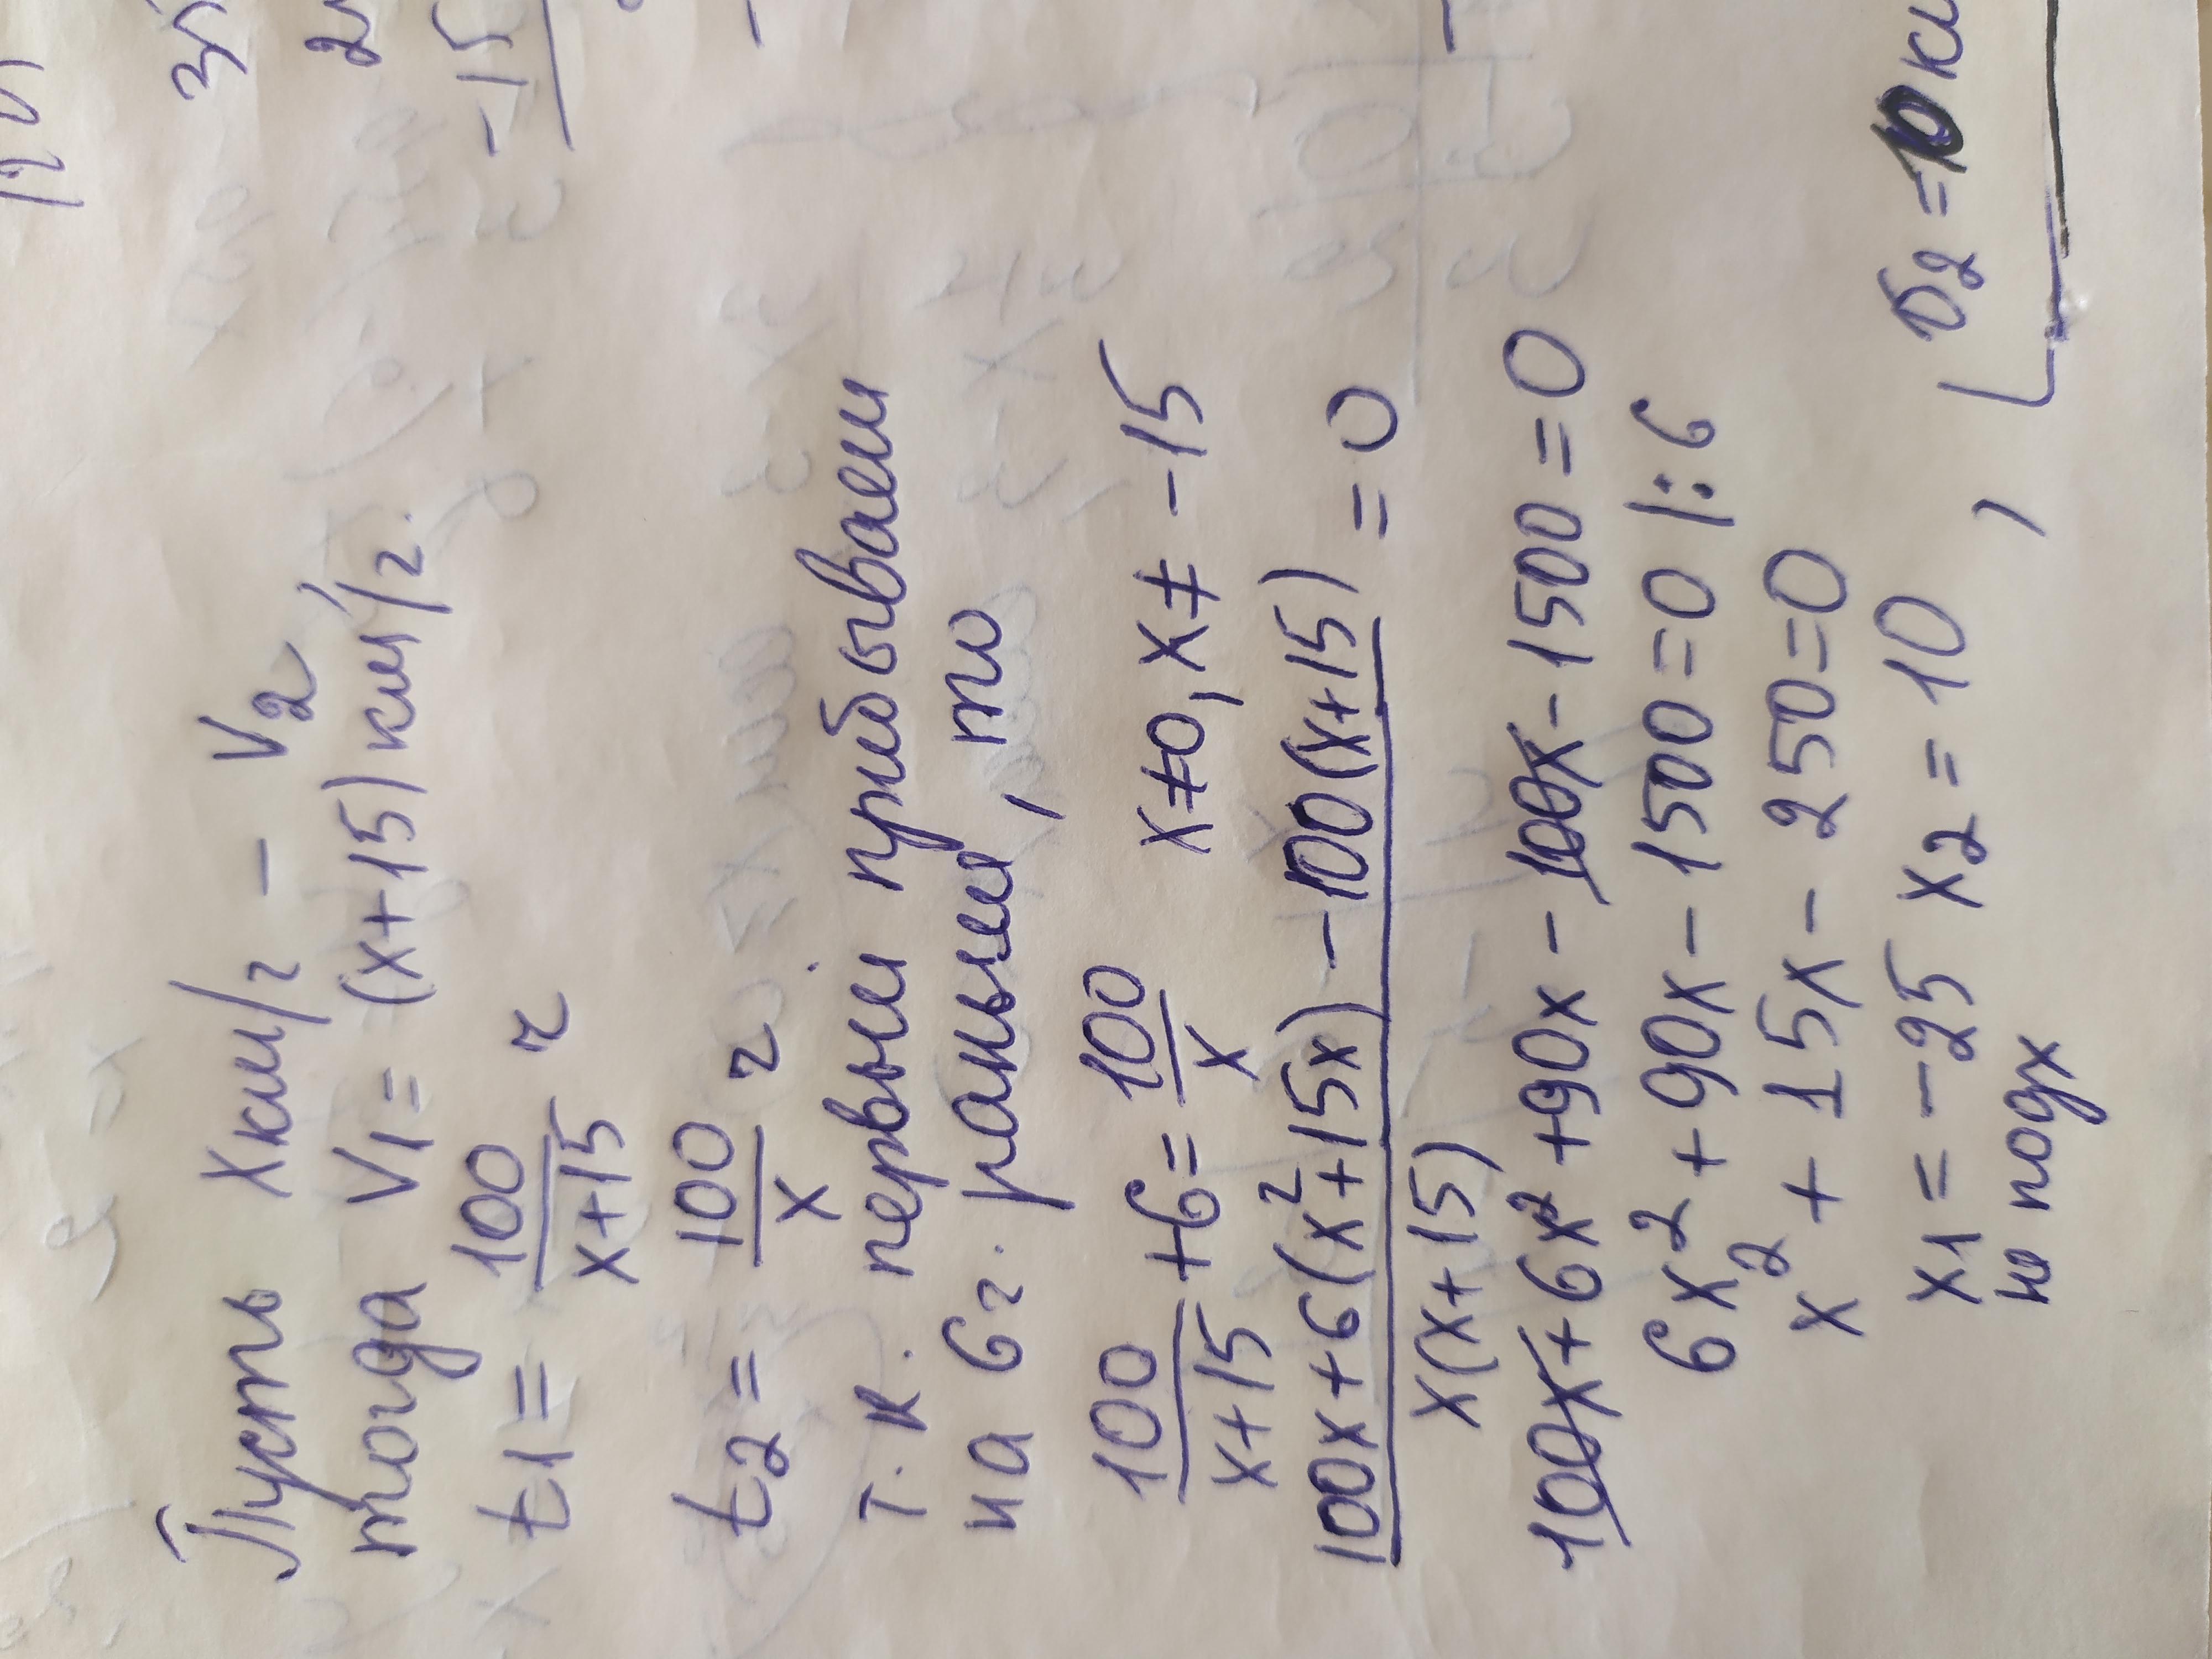 Пусть x км/ч - V2
тогда V1 = (x+15) км/ч.
t1 = 100/(x+15) ч
t2 = 100/x ч
т.к. первый прибывает
на 6ч. раньше, то
100/(x+15) +6 = 100/x x≠0, x≠ -15
(100x+6(x²+15x)-100(x+15))/(x(x+15)) = 0
100x+6x²+90x-100x-1500=0
6x²+90x-1500=0 |:6
x²+15x-250=0
x1 = -25 x2 = 10 , V2 = 10 км
не подх
-15